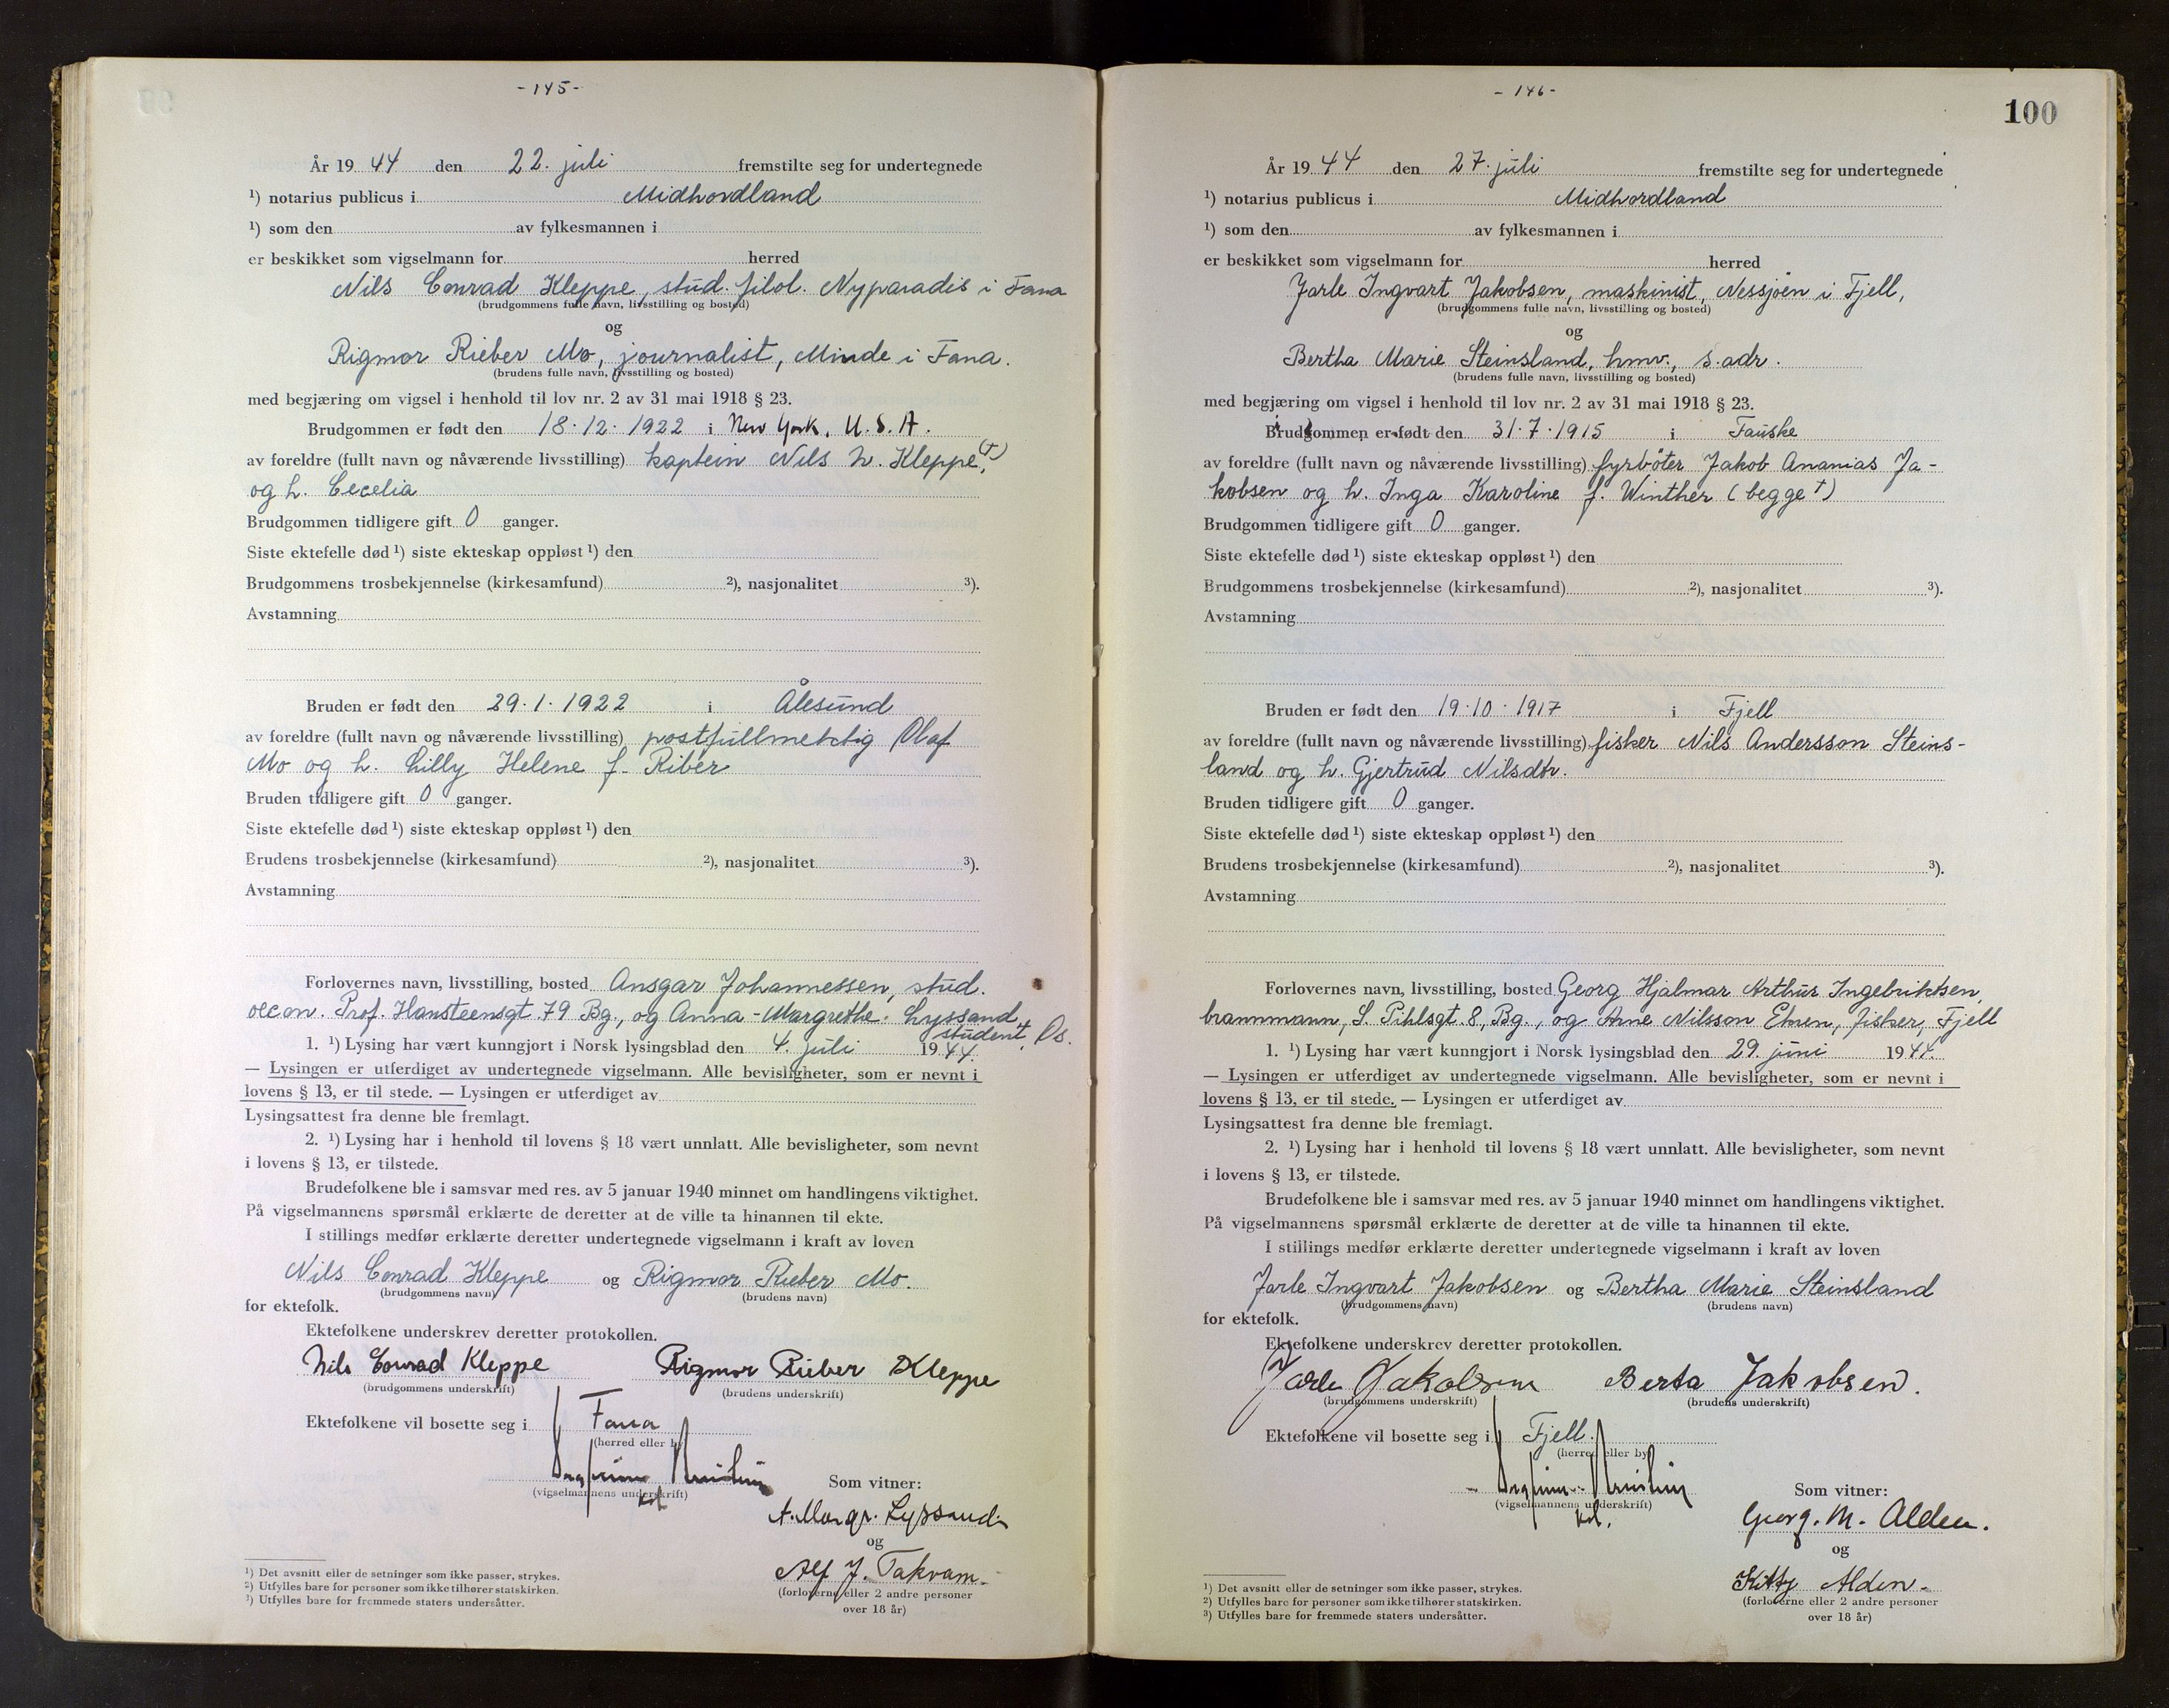 - 145 -
År 19 44 den 22. juli fremstilte seg for undertegnede
¹) notarius publicus i Midhordland
¹) som den av fylkesmannen i
er beskikket som vigselmann for herred
Nils Conrad Kleppe, stud. filol. Nyparadis i Fana
(brudgommens fulle navn, livsstilling og bosted)
og
Rigmor Rieber Mo, journalist, Minde i Fana.
(brudens fulle navn, livsstilling og bosted)
med begjæring om vigsel i henhold til lov nr. 2 av 31 mai 1918 § 23.
Brudgommen er født den 18.12.1922 i New York, U.S.A.
av foreldre (fullt navn og nåværende livsstilling) kaptein Nils h. Kleppe (†),
og h. Cecelia
Brudgommen tidligere gift 0 ganger.
Siste ektefelle død ¹) siste ekteskap oppløst ¹) den
Brudgommens trosbekjennelse (kirkesamfund) ²), nasjonalitet ³).
Avstamning
Bruden er født den 29.1.1922 i Ålesund
av foreldre (fullt navn og nåværende livsstilling) postfullmektig Olaf
Mo og h. Lilly Helene f. Riber
Bruden tidligere gift 0 ganger.
Siste ektefelle død ¹) siste ekteskap oppløst ¹) den
Brudens trosbekjennelse (kirkesamfund) ²), nasjonalitet ³).
Avstamning
Forlovernes navn, livsstilling, bosted Ansgar Johannessen, stud.
oecon. Prof. Hansteensgt. 79 Bg., og Anna-Margrethe Lyssand,
student, Os.
1. ¹) Lysing har vært kunngjort i Norsk lysingsblad den 4. juli 1944.
— Lysingen er utferdiget av undertegnede vigselmann. Alle bevisligheter, som er nevnt i
lovens § 13, er til stede. — Lysingen er utferdiget av
Lysingsattest fra denne ble fremlagt.
2. ¹) Lysing har i henhold til lovens § 18 vært unnlatt. Alle bevisligheter, som nevnt
i lovens § 13, er tilstede.
Brudefolkene ble i samsvar med res. av 5 januar 1940 minnet om handlingens viktighet.
På vigselmannens spørsmål erklærte de deretter at de ville ta hinannen til ekte.
I stillings medfør erklærte deretter undertegnede vigselmann i kraft av loven
Nils Conrad Kleppe og Rigmor Rieber Mo.
(brudgommens navn) (brudens navn)
for ektefolk.
Ektefolkene underskrev deretter protokollen.
Nils Conrad Kleppe Rigmor Rieber Kleppe
(brudgommens underskrift) (brudens underskrift)
Ektefolkene vil bosette seg i Fana
(herred eller by)
(vigselmannens underskrift)
Som vitner:
A. Margr. Lyssand
og
Alf J. Takvam
(forloverne eller 2 andre personer
over 18 år)
¹) Det avsnitt eller de setninger som ikke passer, strykes.
²) Utfylles bare for personer som ikke tilhører statskirken.
³) Utfylles bare for fremmede staters undersåtter.
- 146 -
100
År 19 44 den 27. juli fremstilte seg for undertegnede
¹) notarius publicus i Midhordland
¹) som den av fylkesmannen i
er beskikket som vigselmann for herred
Jarle Ingvart Jakobsen, maskinist, Nessjøen i Fjell,
(brudgommens fulle navn, livsstilling og bosted)
og
Bertha Marie Steinsland, hmv., s. adr.
(brudens fulle navn, livsstilling og bosted)
med begjæring om vigsel i henhold til lov nr. 2 av 31 mai 1918 § 23.
Brudgommen er født den 31.7.1915 i Fauske
av foreldre (fullt navn og nåværende livsstilling) fyrbøter Jakob Ananias Ja-
kobsen og h. Inga Karoline f. Winther (begge †)
Brudgommen tidligere gift 0 ganger.
Siste ektefelle død ¹) siste ekteskap oppløst ¹) den
Brudgommens trosbekjennelse (kirkesamfund) ²), nasjonalitet ³).
Avstamning
Bruden er født den 19.10.1917 i Fjell
av foreldre (fullt navn og nåværende livsstilling) fisker Nils Andersson Steins-
land og h. Gjertrud Nilsdtr.
Bruden tidligere gift 0 ganger.
Siste ektefelle død ¹) siste ekteskap oppløst ¹) den
Brudens trosbekjennelse (kirkesamfund) ²), nasjonalitet ³).
Avstamning
Forlovernes navn, livsstilling, bosted Georg Hjalmar Arthur Ingebriktsen,
brannmann, S. Pihlsgt. 8, Bg., og Arne Nilsson Ekren, fisker, Fjell
1. ¹) Lysing har vært kunngjort i Norsk lysingsblad den 29. juni 1944.
— Lysingen er utferdiget av undertegnede vigselmann. Alle bevisligheter, som er nevnt i
lovens § 13, er til stede. — Lysingen er utferdiget av
Lysingsattest fra denne ble fremlagt.
2. ¹) Lysing har i henhold til lovens § 18 vært unnlatt. Alle bevisligheter, som nevnt
i lovens § 13, er tilstede.
Brudefolkene ble i samsvar med res. av 5 januar 1940 minnet om handlingens viktighet.
På vigselmannens spørsmål erklærte de deretter at de ville ta hinannen til ekte.
I stillings medfør erklærte deretter undertegnede vigselmann i kraft av loven
Jarle Ingvart Jakobsen og Bertha Marie Steinsland
(brudgommens navn) (brudens navn)
for ektefolk.
Ektefolkene underskrev deretter protokollen.
Jarle Jakobsen Berta Jakobsen.
(brudgommens underskrift) (brudens underskrift)
Ektefolkene vil bosette seg i Fjell.
(herred eller by)
(vigselmannens underskrift)
Som vitner:
Georg. M. Alden.
og
Kitty Alden.
(forloverne eller 2 andre personer
over 18 år)
¹) Det avsnitt eller de setninger som ikke passer, strykes.
²) Utfylles bare for personer som ikke tilhører statskirken.
³) Utfylles bare for fremmede staters undersåtter.